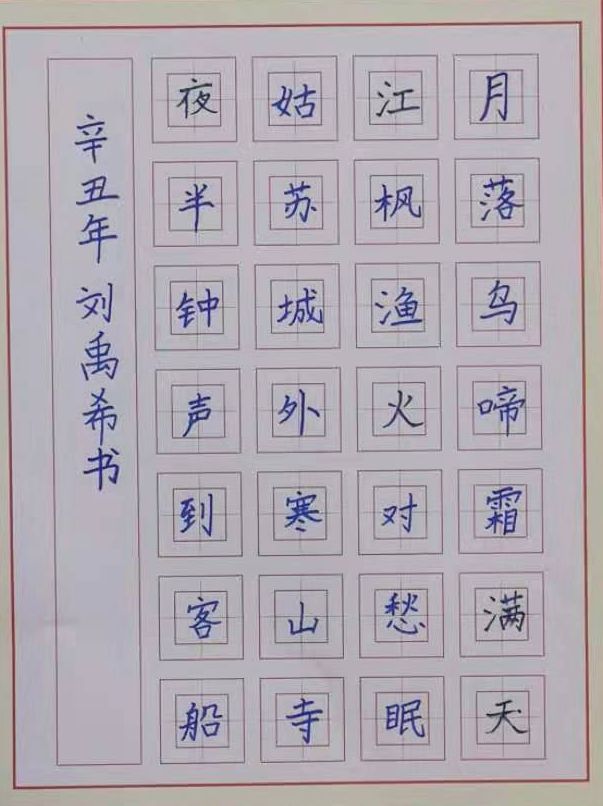 月落乌啼霜满天
江枫渔火对愁眠
姑苏城外寒山寺
夜半钟声到客船
辛丑年 刘禹希书